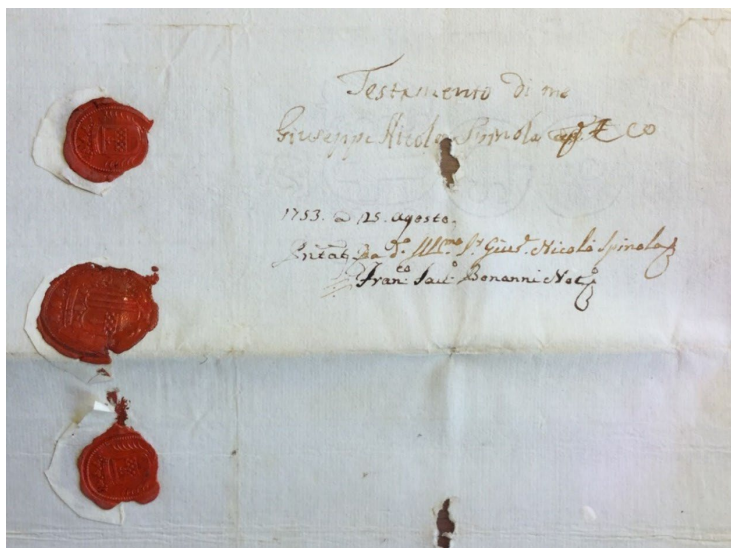 Testamento di me
Giuseppe Nicolo Spinola
1753. a 25. Agosto.
Pntat. da d.º Ill.mo Sr. Gius.e Nicolò Spinola
Fran.co Sav.º Bonanni Not.º